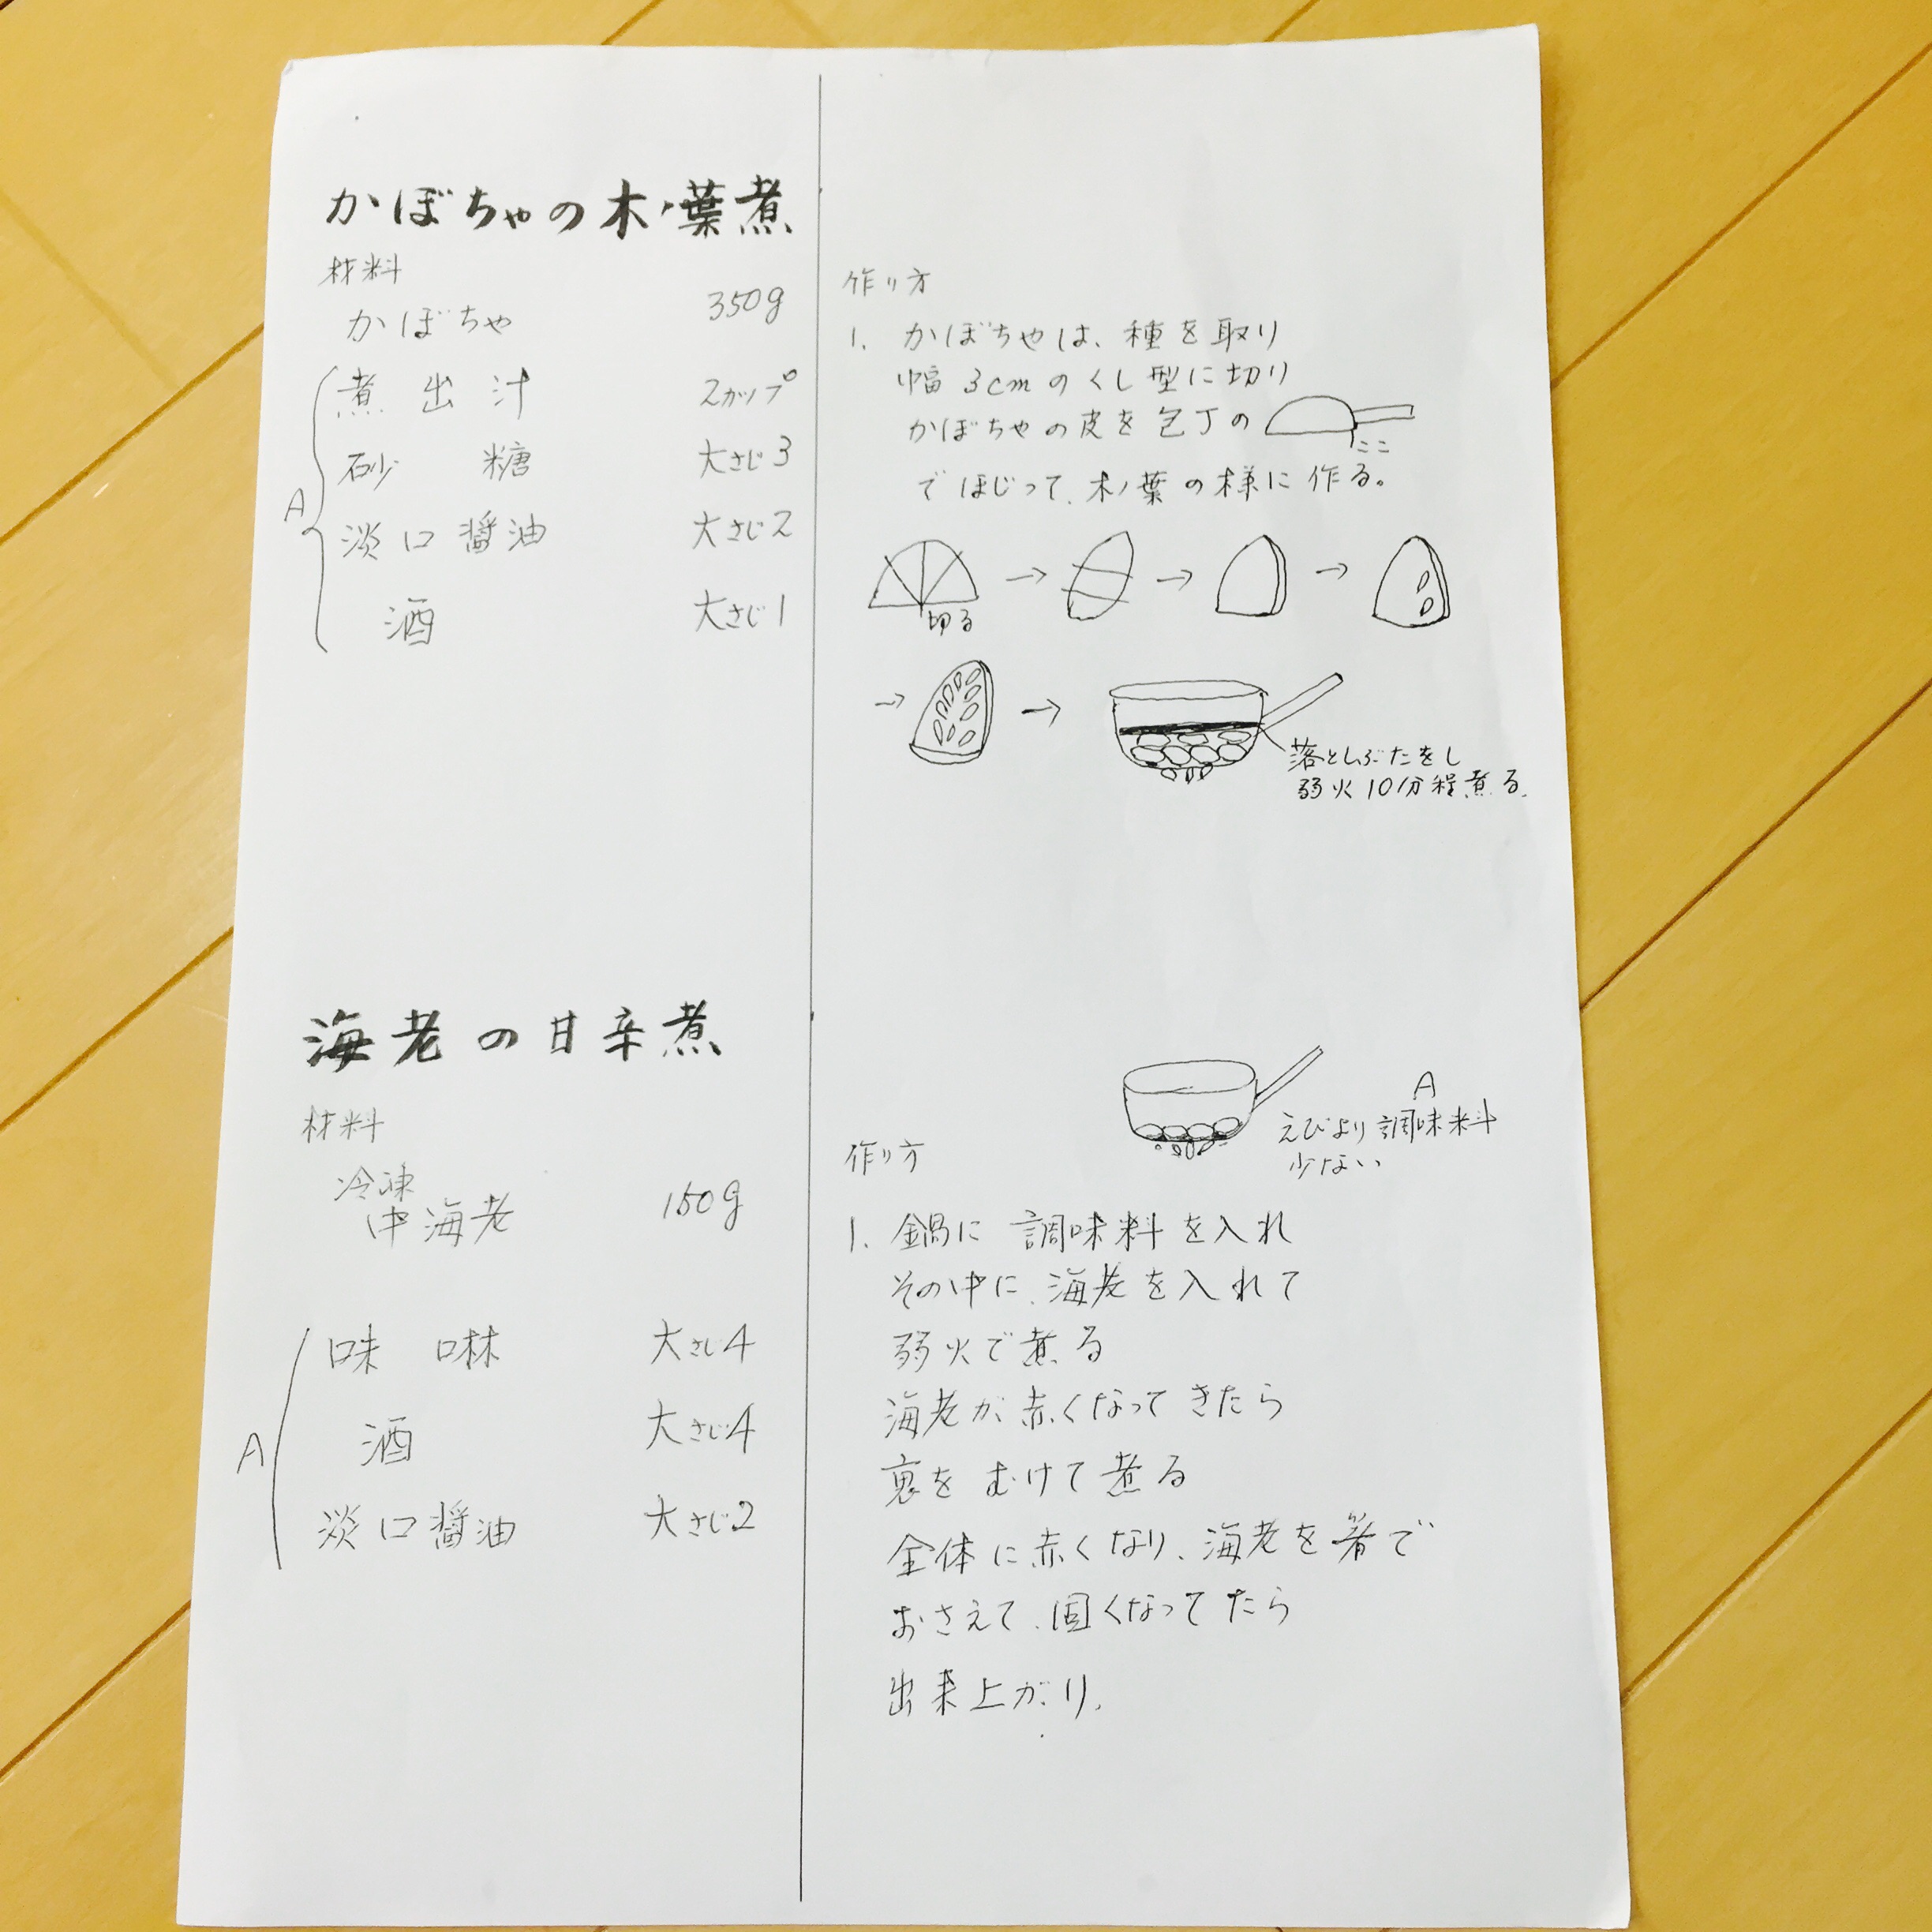 かぼちゃの木ノ葉煮
材料
かぼちゃ 350g
A
煮出汁 2カップ
砂糖 大さじ3
淡口醤油 大さじ2
酒 大さじ1
作り方
1. かぼちゃは、種を取り
幅3cmのくし型に切り
かぼちゃの皮を包丁の
ここ
でほじって、木ノ葉の様に作る。
→ → →
切る
→ →
落としぶたをし
弱火10分程煮る。
海老の甘辛煮
材料
冷凍
中海老 150g
A
味 啉 大さじ4
酒 大さじ4
淡口醤油 大さじ2
A
えびより調味料
少ない
作り方
1. 鍋に調味料を入れ
その中に、海老を入れて
弱火で煮る
海老が赤くなってきたら
裏をむけて煮る
全体に赤くなり、海老を箸で
おさえて、固くなってたら
出来上がり。